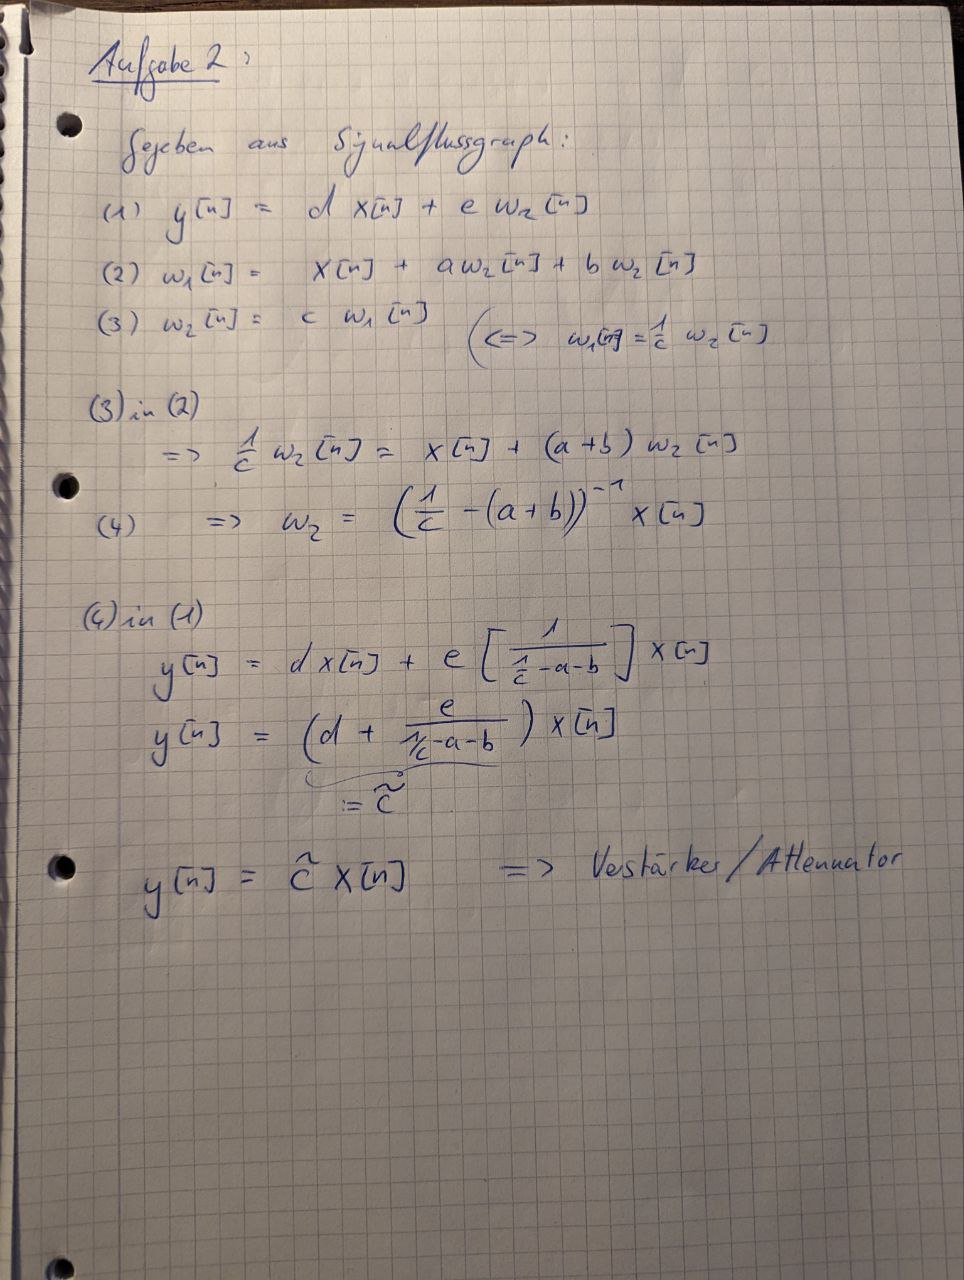 Aufgabe 2:
Gegeben aus Signalflussgraph:
(1) y[n] = d x[n] + e w₂[n]
(2) w₁[n] = x[n] + a w₂[n] + b w₂[n]
(3) w₂[n] = c w₁[n] (<=> w₁[n] = 1/c w₂[n]
(3) in (2)
=> 1/c w₂[n] = x[n] + (a+b) w₂[n]
(4) => w₂ = (1/c - (a+b))⁻¹ x[n]
(4) in (1)
y[n] = d x[n] + e [1/(1/c - a - b)] x[n]
y[n] = (d + e/(1/c - a - b)) x[n]
:= c̃
y[n] = c̃ x[n] => Verstärker/Attenuator